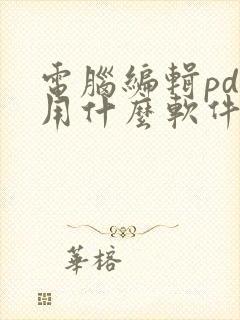 電腦編輯pd
用什麼軟件
華榕